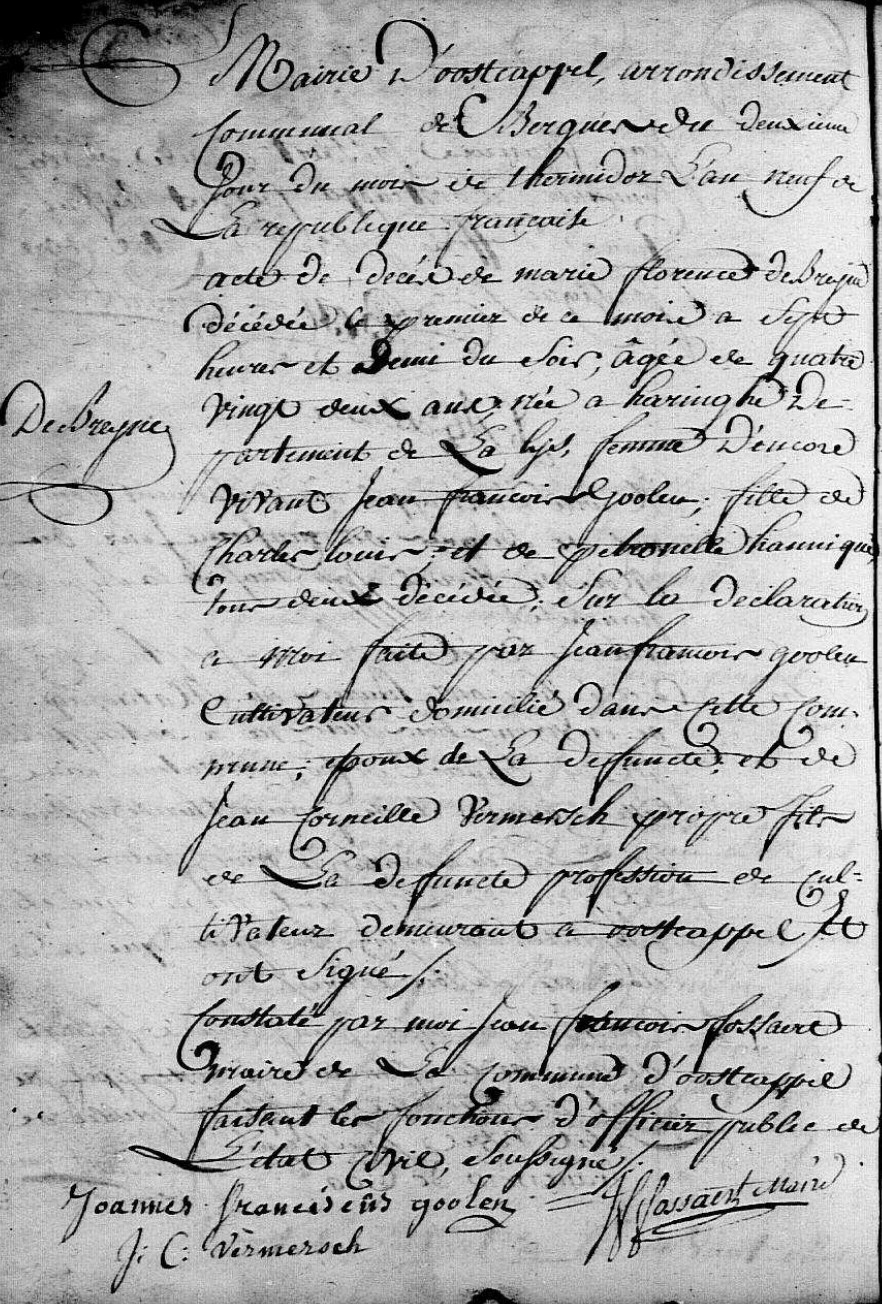 Mairie D'oostcappel, arrondissement
Communal de Bergues du deuxieme
Jour du mois de thermidor L'an neuf de
La republique françoise.
acte de decés de marie florence deBreyne
décédée le premier de ce mois a sept
heures et Demi du soir, âgée de quatre
DeBreyne
vingt deux ans, née a haringhe De-
partement de La lys, femme D'encore
vivant Jean francois Goolen, fille de
Charles louis, et de petronelle hannique,
tous deux décédée, sur la déclaration
a moi faite par Jean francois goolen
Cultivateur domicilié dans Cette Com-
mune, epoux de La defuncte, et de
Jean Corneille Vermersch propre fils
de La defuncte profession de cul-
tivateur demeurant a oostcappel Et
ont signé /.
Constaté par moi Jean francois fossaert
maire de La Commune d'oostcappel
faisant les fonctions d'officier public de
L'état Civil, soussigné /.
Joannes franciscus goolen
J F fossaert Maire
J: C: Vermersch